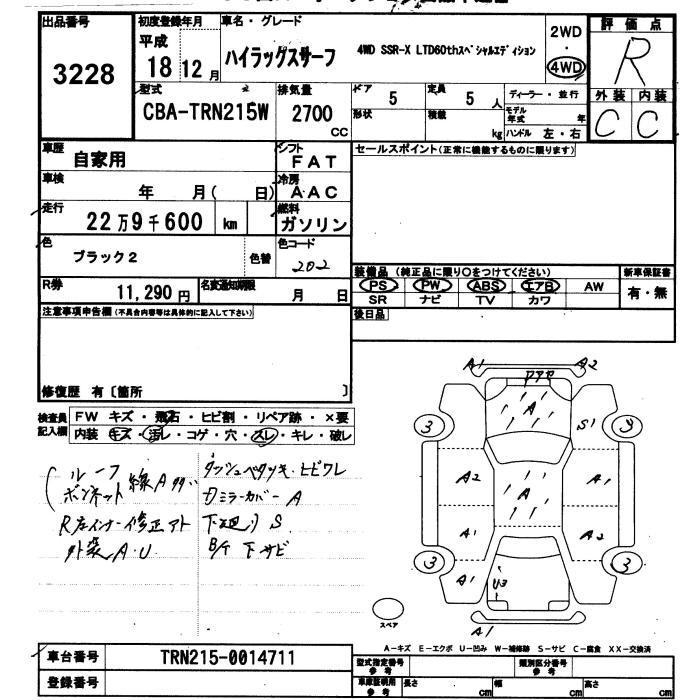 出品番号
3228
初度登録年月
平成
18 12 月
車名・グレード
ハイラックスサーフ
4WD SSR-X LTD60thスペシャルエディション
2WD
4WD
評価点
R
外装
内装
C
C
型式
CBA-TRN215W
排気量
2700
CC
ドア
5
定員
5 人
形状
積載
kg
ディーラー・並行
モデル年式
年
ハンドル 左・右
車歴
自家用
シフト
FAT
セールスポイント(正常に機能するものに限ります)
車検
年 月( 日)
冷房
AAC
走行
22 万 9 千 600 km
燃料
ガソリン
色
ブラック2
色替
色コード
202
装備品 (純正品に限り〇をつけてください)
新車保証書
PS PW ABS エアB AW
有・無
SR ナビ TV カワ
R券
11,290 円
名変通知期限
月 日
後日品
注意事項申告欄(不具合内容等は具体的に記入して下さい)
修復歴 有〔箇所 〕
検査員記入欄
FW キズ・飛石・ヒビ割・リペア跡・×要
内装 キズ・汚レ・コゲ・穴・スレ・キレ・破レ
ルーフ
ボンネット 線A多
R左インナー修正アト
外装A・U
ダッシュベタツキ・ヒビワレ
ミラーカバーA
下廻りS
下サビ
A1
A2
A
3
S1
3
A2
A
A1
A1
A2
3
A1
U3
3
A1
スペア
A-キズ E-エクボ U-凹み W-補修跡 S-サビ C-腐食 XX-交換済
車台番号
TRN215-0014711
登録番号
型式指定番号
参考
類別区分番号
参考
車庫証明用
参考
長さ
cm
幅
cm
高さ
cm